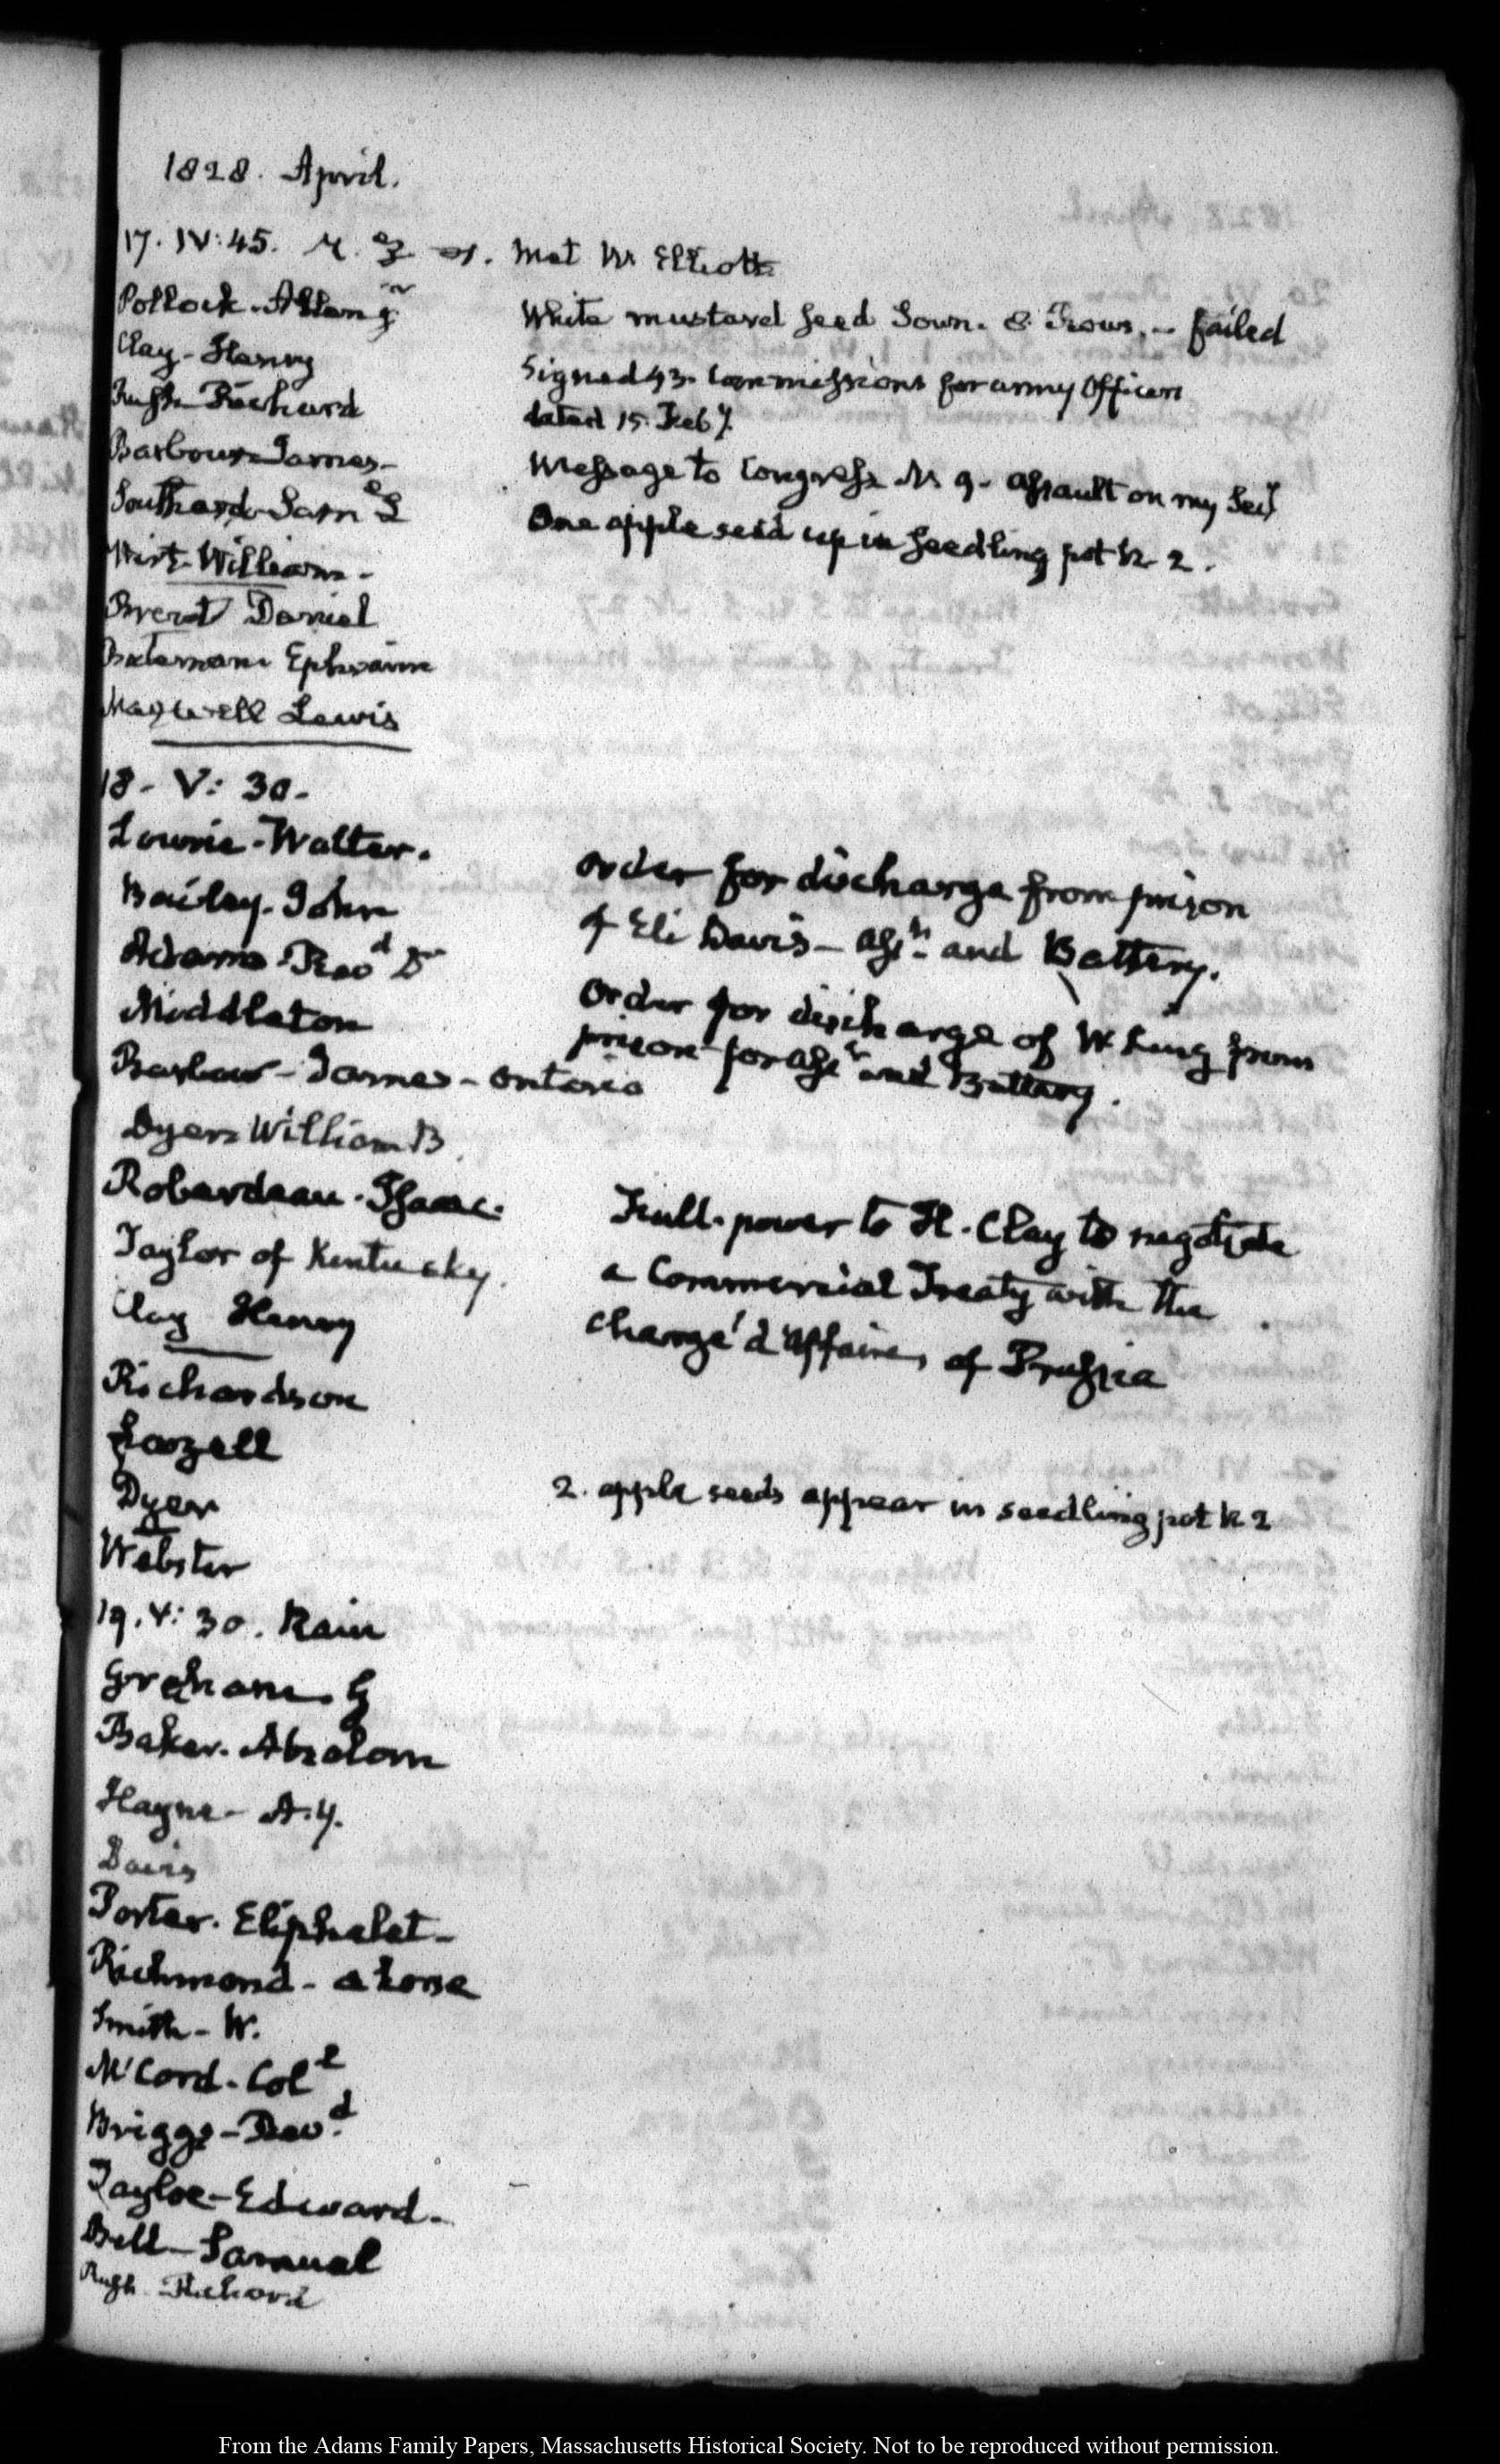 1828. April.
17. IV: 45. Met Mr Elliott
Pollock. Allan
White mustard seed Sown. 8 Rows. - failed
Clay - Henry
Signed 43. Commissions for army Officers
Rush Richard
dated 15. Feby.
Barbour James -
Message to Congress N. 9. assault on my Secy
Southard Saml L
One apple seed up in seedling pot N. 2.
Wirt William -
Brent Daniel
Bateman Ephraim
Maxwell Lewis
18 - V: 30 -
Lowrie - Walter.
Order for discharge from prison
Bailey. John
of Eli Davis - Asst. and Battery.
Adams Revd D
Order for discharge of W. King from
Middleton
prison for asst and Battery.
Barbour - James - Ontario
Dyer William B.
Robardeau. Isaac.
Full power to H. Clay to negotiate
Taylor of Kentucky.
a Commercial Treaty with the
Clay Henry
chargé d'affaires of Prussia
Richardson
Lazell
2. apple seeds appear in seedling pot N 2
Dyer
Webster
19. V: 30. Rain
Graham. G
Baker. Absolom
Hayne - A. Y.
Davis
Porter. Eliphalet -
Richmond - a horse
Smith - W.
McCord - Coll
Briggs - Revd.
Tayloe - Edward -
Bell - Samuel
Rush Richard
From the Adams Family Papers, Massachusetts Historical Society. Not to be reproduced without permission.